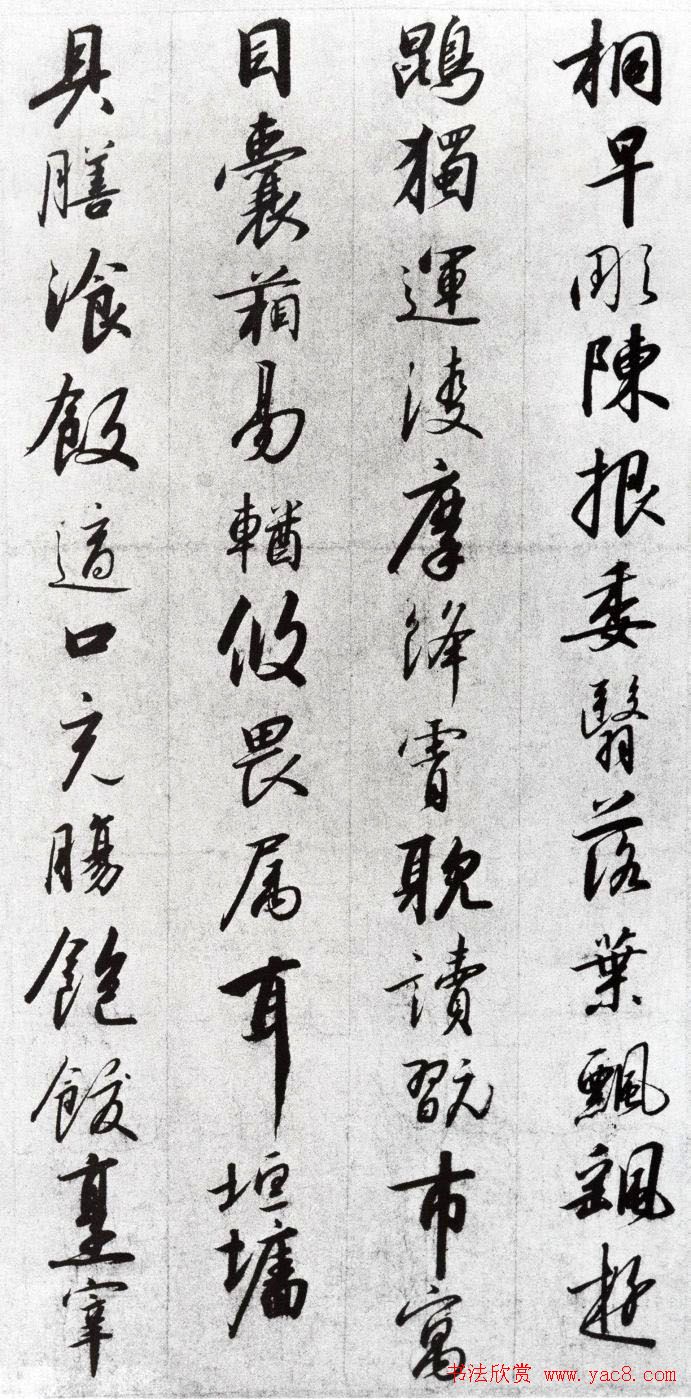 桐早彫陳根委翳落葉飄颻遊
鵾獨運淩摩絳霄耽讀翫市寓
目囊箱易輶攸畏属耳垣墻
具膳湌飯適口充腸飽飫烹宰
书法欣赏 www.yac8.com